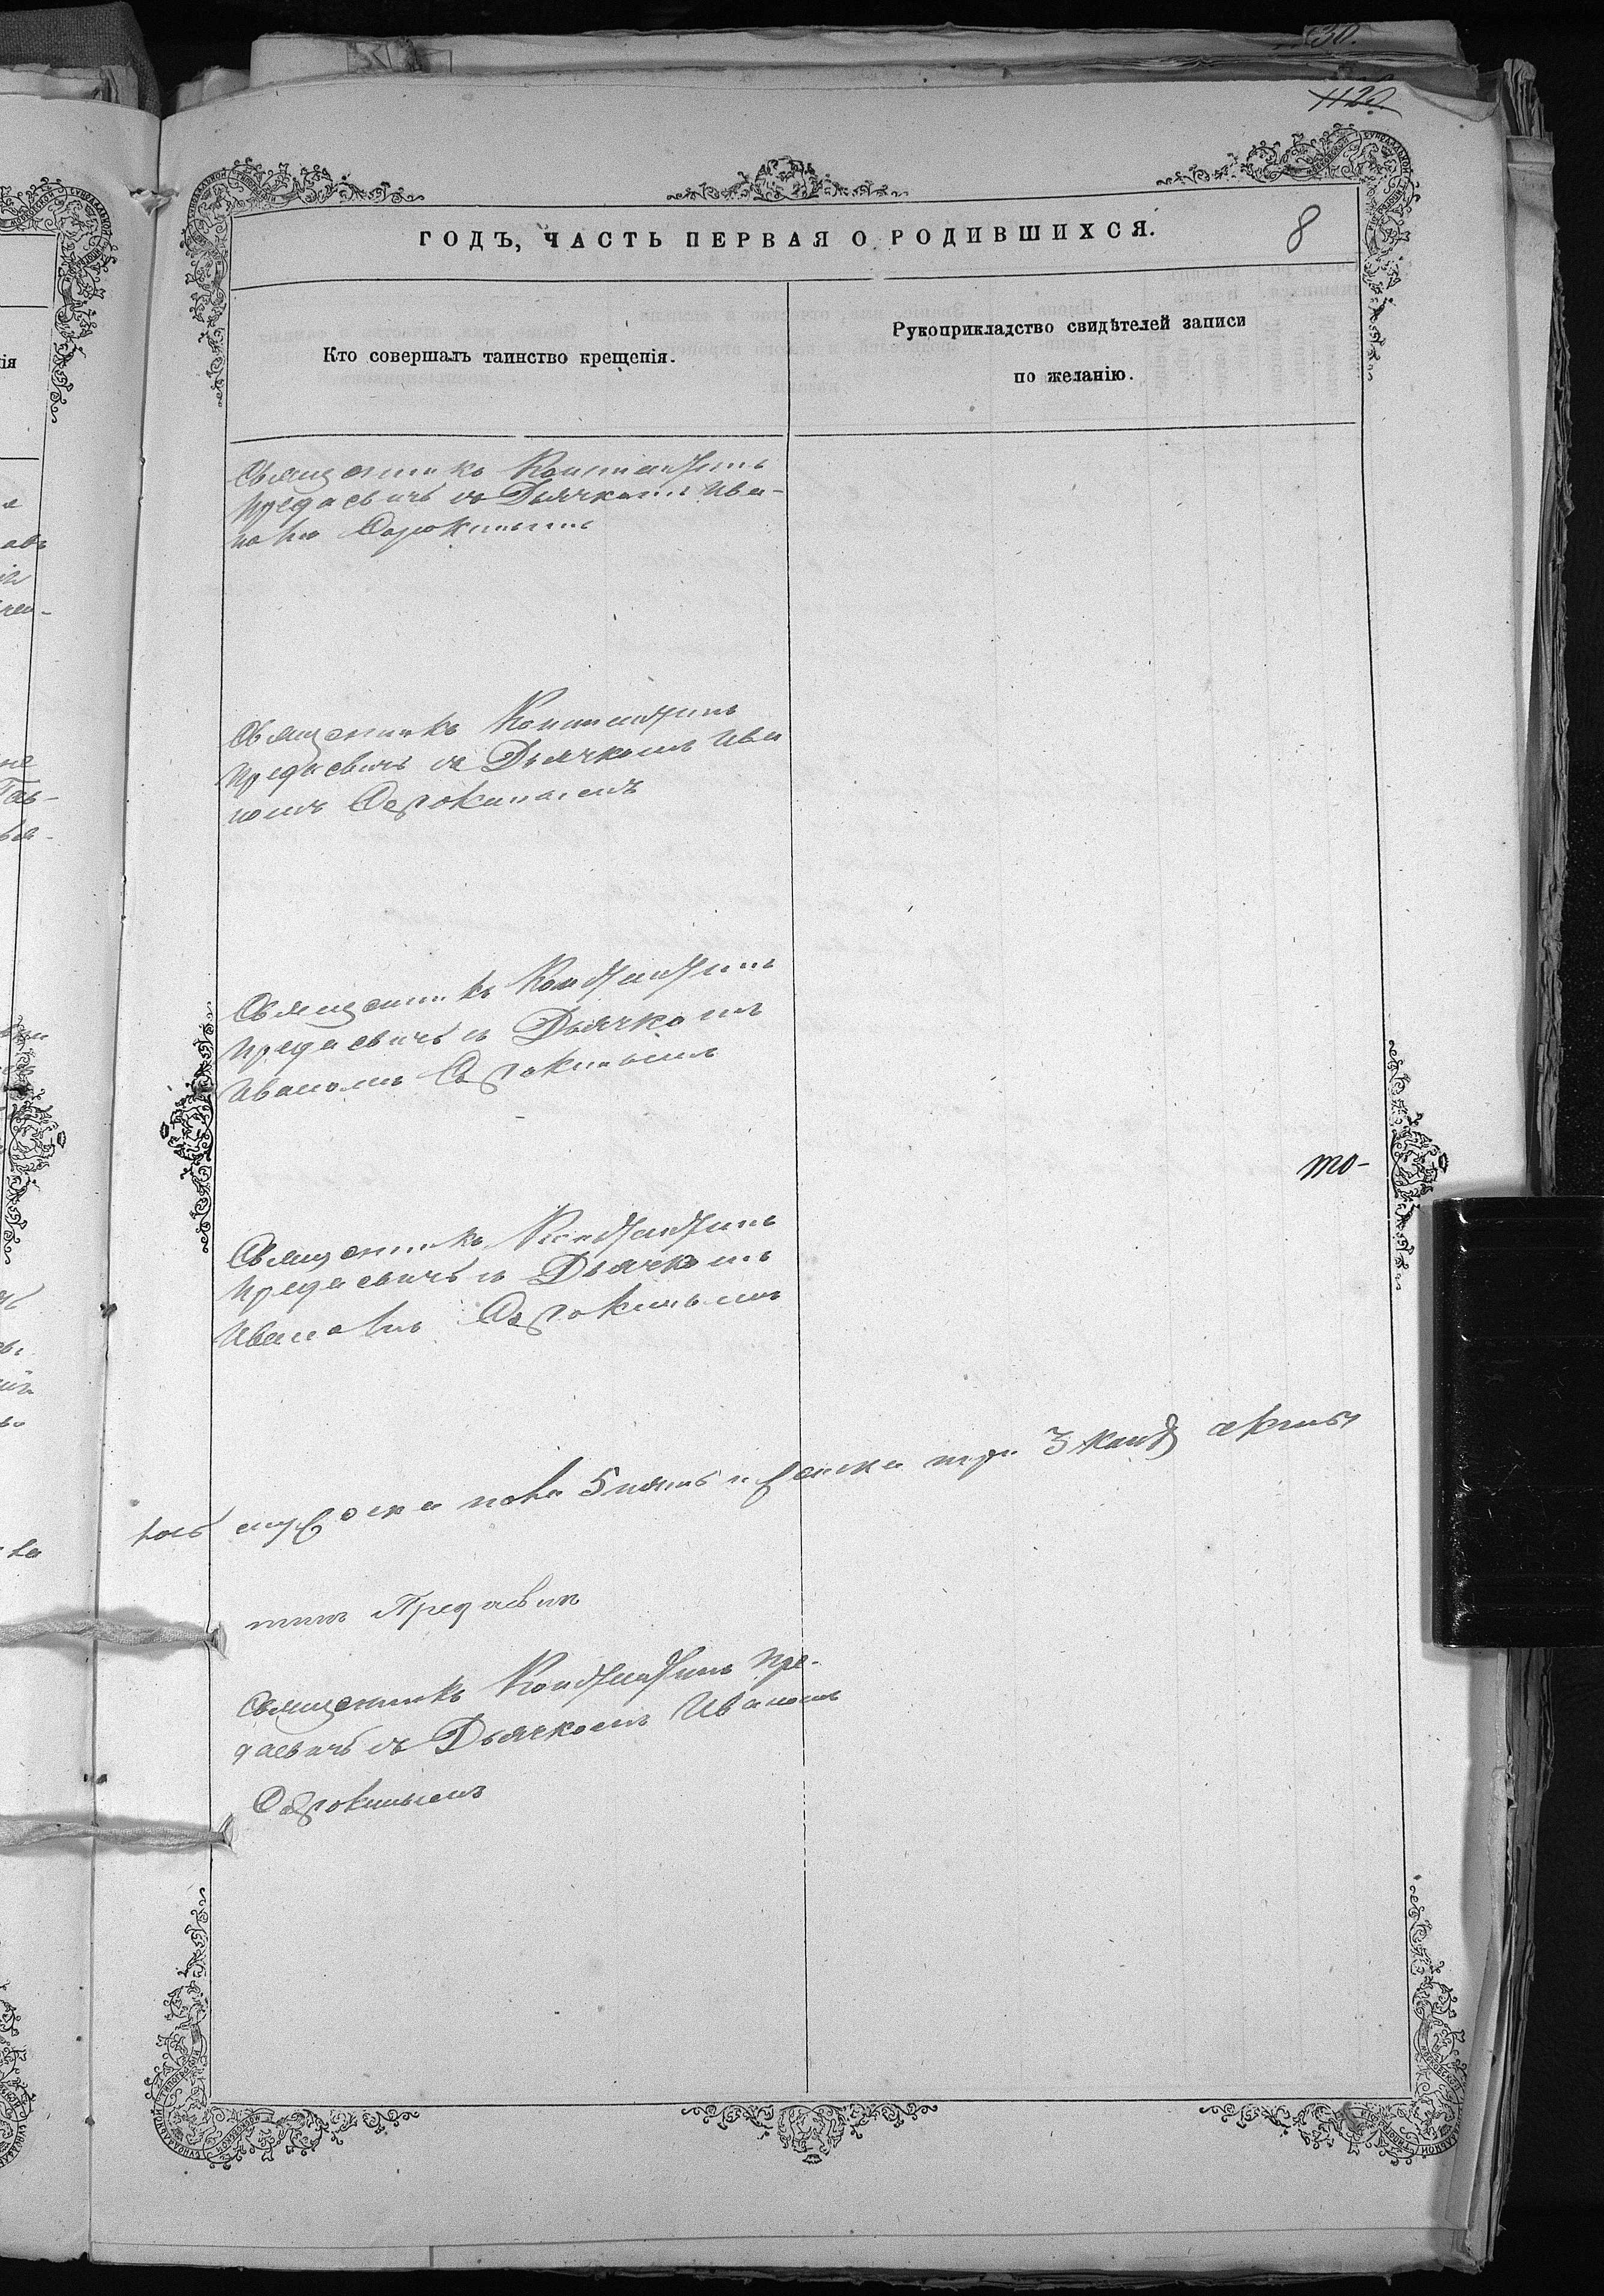 30.
1120
ГОДЪ, ЧАСТЬ ПЕРВАЯ О РОДИВШИХСЯ.
8
Кто совершалъ таинство крещенія.
Рукоприкладство свидѣтелей записи
по желанію.
Священникъ Константинъ
Предаевичъ съ Дьячкомъ Ива-
номъ Сорокинымъ
Священникъ Константинъ
Предаевичъ съ Дьячкомъ Ива
номъ Сорокинымъ
Священникъ Константинъ
Предаевичъ съ Дьячкомъ
Иваномъ Сорокинымъ
то-
Священникъ Константинъ
Предаевичъ съ Дьячкомъ
Иваномъ Сорокинымъ
мужеска пола 5 пять и женска три 3
Священникъ Константинъ Пре-
даевичъ съ Дьячкомъ Иваномъ
Сорокинымъ